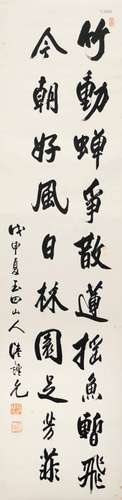 竹動蟬爭散蓮搖魚暫飛
今朝好風日林園足芳菲
戊申夏玉四山人陸謹光